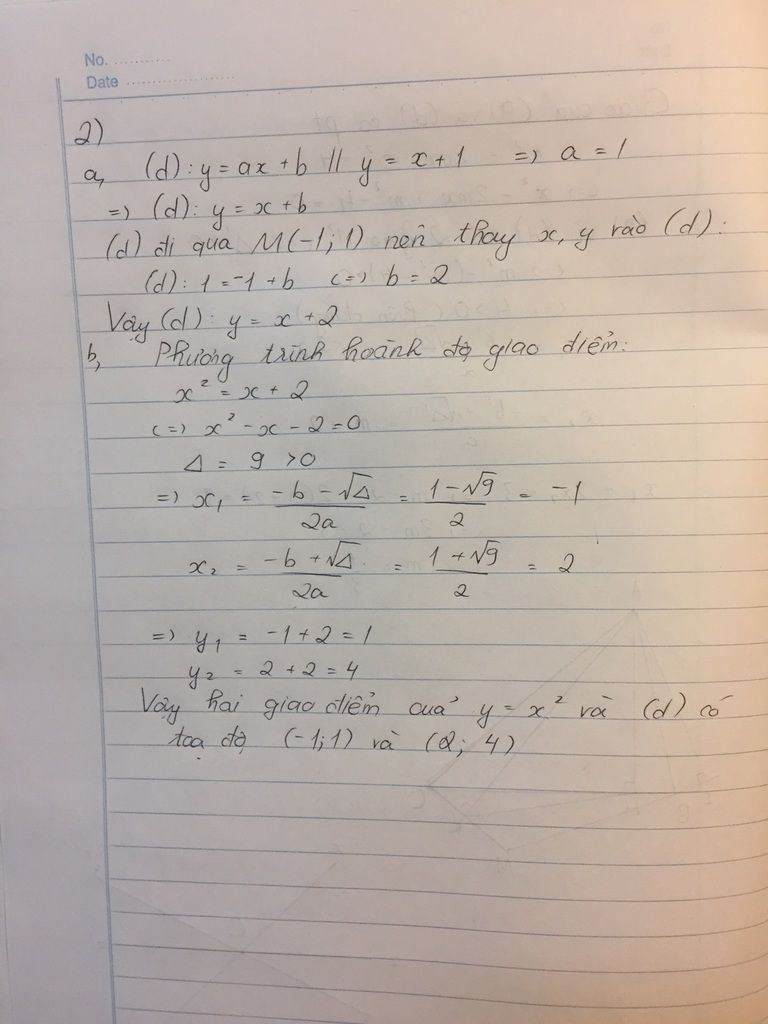 No. ............
Date ........................
2)
a, (d): y = ax + b // y = x + 1 => a = 1
=> (d): y = x + b
(d) đi qua M(-1; 1) nên thay x, y vào (d):
(d): 1 = -1 + b <=> b = 2
Vậy (d): y = x + 2
b, Phương trình hoành độ giao điểm:
x² = x + 2
<=> x² - x - 2 = 0
Δ = 9 > 0
=> x₁ = (-b - √Δ)/2a = (1 - √9)/2 = -1
x₂ = (-b + √Δ)/2a = (1 + √9)/2 = 2
=> y₁ = -1 + 2 = 1
y₂ = 2 + 2 = 4
Vậy hai giao điểm của y = x² và (d) có
toạ độ (-1; 1) và (2; 4)